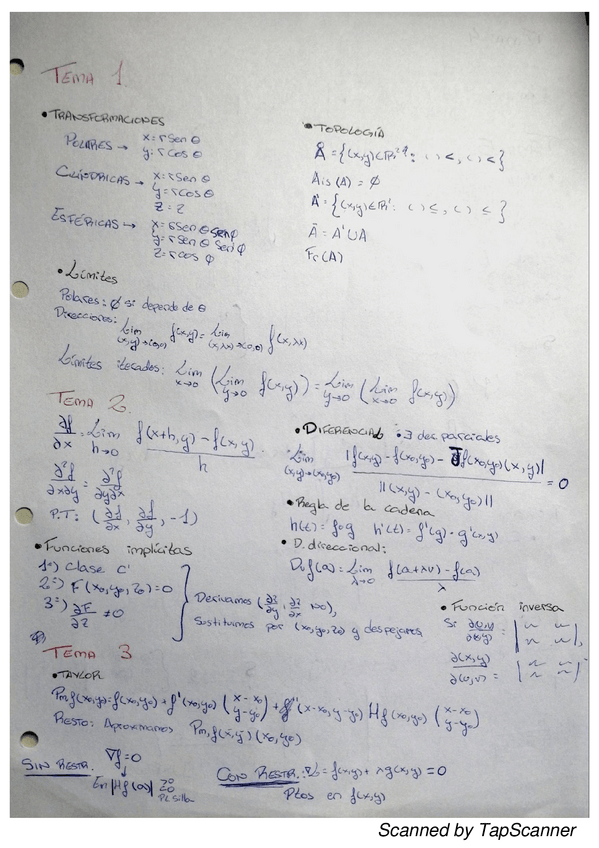 TEMA 1.
• TRANSFORMACIONES
POLARES → x = r Sen θ
y = r Cos θ
CILÍNDRICAS → x = r Sen θ
y = r Cos θ
z = z
ESFÉRICAS → x = r Sen θ Sen φ
y = r Sen θ Sen φ
z = r Cos φ
• TOPOLOGÍA
Ais (A) = ∅
Ā = A' ∪ A
Fr (A)
• Límites
Polares: ∄ si depende de θ
Direcciones: Lim (x,y)→(0,0) f(x,y) = Lim (x,λx)→(0,0) f(x,λx)
Límites iterados: Lim x→0 (Lim y→0 f(x,y)) = Lim y→0 (Lim x→0 f(x,y))
TEMA 2.
∂f/∂x = Lim h→0 (f(x+h,y) − f(x,y))/h
∂²f/∂x∂y = ∂²f/∂y∂x
P.T: (∂f/∂x, ∂f/∂y, −1)
• DIFERENCIAL • ∃ der. parciales
Lim (x,y)→(x₀,y₀) |f(x,y) − f(x₀,y₀) − ∇f(x₀,y₀)(x,y)| / ||(x,y) − (x₀,y₀)|| = 0
• Regla de la cadena
h(t) = f∘g h'(t) = f'(g) · g'(x,y)
• D. direccional:
Dv f(a) = Lim λ→0 (f(a+λv) − f(a))/λ
• Funciones implícitas
1º) Clase C'
2º) F(x₀,y₀,z₀) = 0
3º) ∂F/∂z ≠ 0
Derivamos
Sustituimos por (x₀,y₀,z₀) y despejamos
• Función inversa
Si ∂(u,v)/∂(x,y) =
∂(x,y)/∂(u,v) =
TEMA 3
• TAYLOR
Resto: Aproximamos
SIN RESTR. ∇f = 0
En |Hf(a)|
Pt. Silla
CON RESTR. : = f(x,y) + λg(x,y) = 0
Ptos en f(x,y)
Scanned by TapScanner